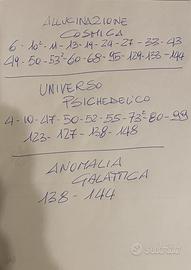 ALLUCINAZIONE
COSMICA
6 - 10² - 11 - 13 - 19 - 24 - 27 - 33 - 43
49 - 50 - 53² - 60 - 68 - 95 - 129 - 133 - 144
UNIVERSO
PSICHEDELICO
4 - 10 - 47 - 50 - 52 - 55 - 73² - 80 - 99
123 - 127 - 138 - 148
ANOMALIA
GALATTICA
138 - 144
subito